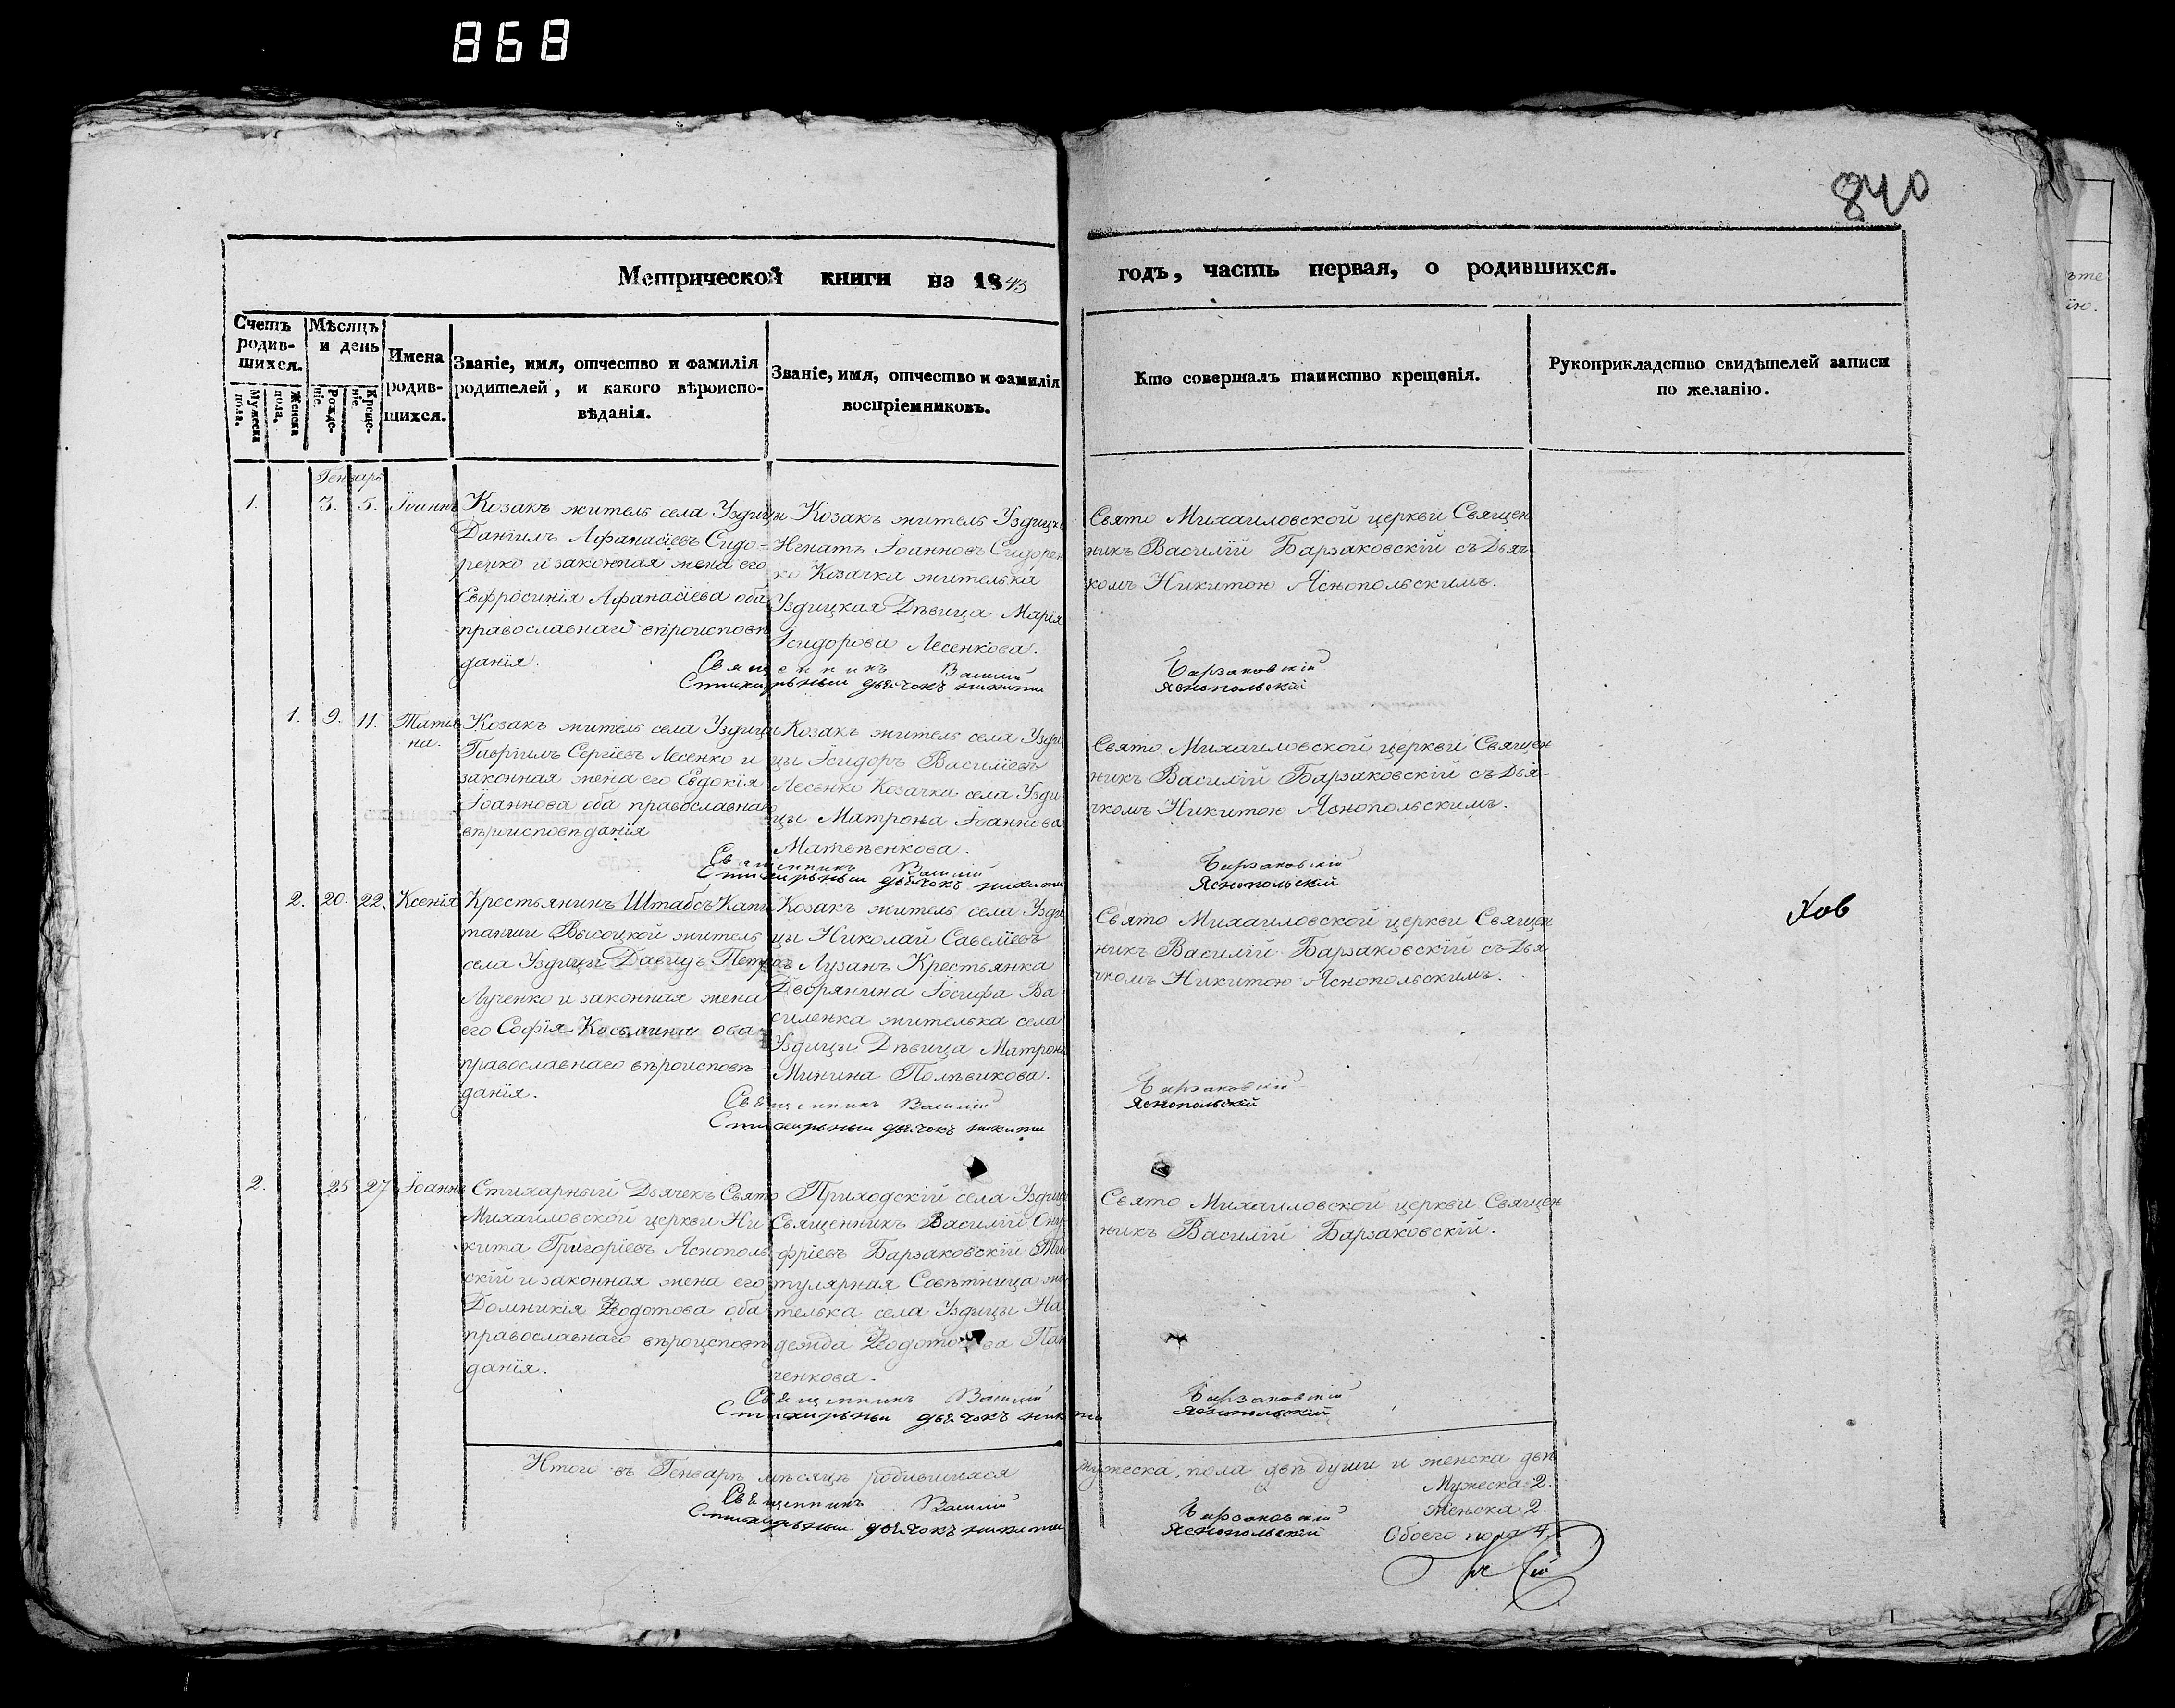 868
840
Метрической книги на 1843
годъ, часть первая, о родившихся.
Счетъ родив-
шихся.
Мужеска пола.
Женска пола.
Мѣсяцъ
и день
Рожде-
ніе.
Креще-
ніе.
Имена
родив-
шихся.
Званіе, имя, отчество и фамилія
родителей, и какого вѣроиспо-
вѣданія.
Званіе, имя, отчество и фамилія
воспріемниковъ.
Кто совершалъ таинство крещенія.
Рукоприкладство свидѣтелей записи
по желанію.
Генварь
1. 3. 5. Іоаннъ
Козакъ житель села Уздицы
Даніилъ Афанасіевъ Сидо-
ренко и законная жена его
Евфросинія Афанасіева оба
православнаго вѣроисповѣ
данія.
Козакъ житель Уздицкі
Игнатъ Іоанновъ Сидорен
ко Козачка жителька
Уздицкая Дѣвица Марія
Ісидорова Лесенкова.
Свято Михаиловской церкви Священ
никъ Василій Барзаковскій съ Дьяч-
комъ Никитою Яснопольскимъ.
Священникъ Василій Барзаковскій
Стихарный дьячокъ Никита Яснопольскій
1. 9. 11. Татія
на.
Козакъ житель села Уздицы
Гавріилъ Сергіевъ Лесенко и
законная жена его Евдокія
Іоаннова оба православнаго
вѣроисповѣданія
Козакъ житель села Узди
цы Ісидоръ Василіевъ
Лесенко Козачка села Узди
цы Матрона Іоаннова
Матвѣенкова.
Свято Михаиловской церкви Священ
никъ Василій Барзаковскій съ Дья-
чкомъ Никитою Яснопольскимъ.
Священникъ Василій Барзаковскій
Стихарный дьячокъ Никита Яснопольскій
2. 20. 22. Ксенія
Крестьянинъ Штабсъ Капи
танши Высоцкой житель
села Уздицы Давидъ Петровъ
Лученко и законная жена
его Софія Косьмина оба
православнаго вѣроисповѣ-
данія.
Козакъ житель села Узди
цы Николай Савеліевъ
Лузанъ Крестьянка
Дворянина Іосифа Ва
силенка жителька села
Уздицы Дѣвица Матрона
Минина Полѣвикова.
Свято Михаиловской церкви Священ
никъ Василій Барзаковскій съ Дья
чкомъ Никитою Яснопольскимъ.
Священникъ Василій Барзаковскій
Стихарный дьячокъ Никита Яснопольскій
2. 25 27 Іоаннъ
Стихарный Дьячекъ Свято
Михаиловской церкви Ни
кита Григоріевъ Яснополь
скій и законная жена его
Домникія Ѳеодотова оба
православнаго вѣроисповѣ
данія.
Приходскій села Уздицы
Священникъ Василій Они
фріевъ Барзаковскій Ти
тулярная Совѣтница жи
телька села Уздицы На
дежда Ѳеодотова Пан
ченкова.
Свято Михаиловской церкви Священ
никъ Василій Барзаковскій.
Священникъ Василій Барзаковскій
Стихарный дьячокъ Никита Яснопольскій
Итого въ Генварѣ мѣсяцѣ родившихся мужеска пола двѣ души и женска двѣ
Мужеска 2.
Женска 2.
Обоего пола 4.
Священникъ Василій Барзаковскій
Стихарный дьячокъ Никита Яснопольскій